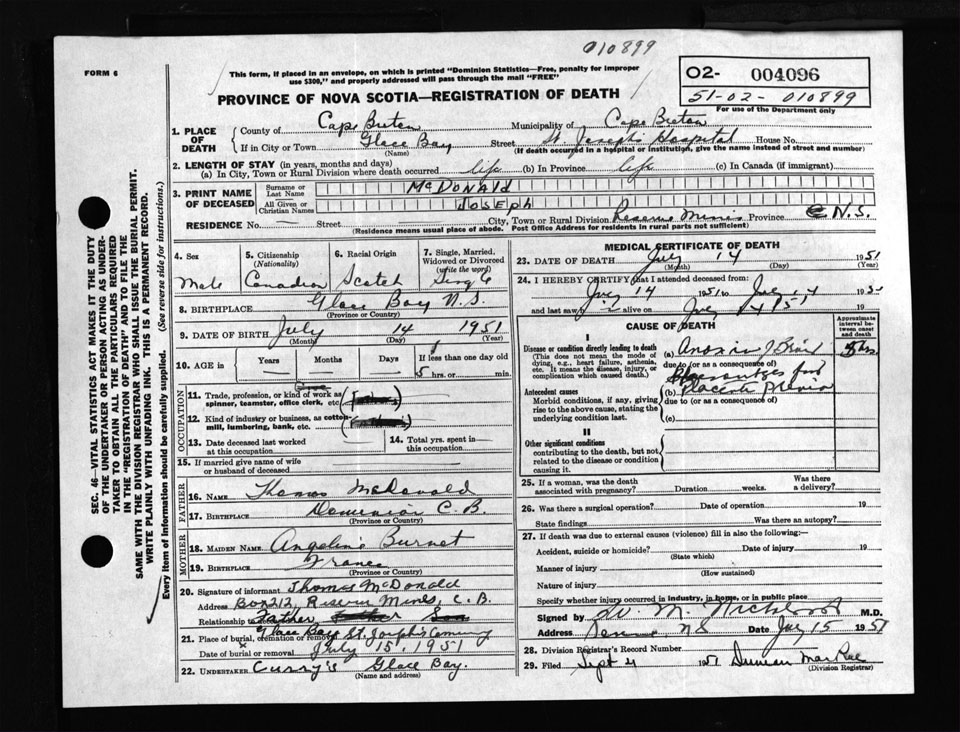 010899
FORM 6
This form, if placed in an envelope, on which is printed "Dominion Statistics—Free, penalty for improper
use $300," and properly addressed will pass through the mail "FREE"
O2- 004096
51-02-010899
For use of the Department only
PROVINCE OF NOVA SCOTIA—REGISTRATION OF DEATH
SEC. 46—VITAL STATISTICS ACT MAKES IT THE DUTY
OF THE UNDERTAKER OR PERSON ACTING AS UNDER-
TAKER TO OBTAIN ALL THE PARTICULARS REQUIRED
IN THE "REGISTRATION OF DEATH" AND TO FILE THE
SAME WITH THE DIVISION REGISTRAR WHO SHALL ISSUE THE BURIAL PERMIT.
WRITE PLAINLY WITH UNFADING INK. THIS IS A PERMANENT RECORD.
Every item of information should be carefully supplied. (See reverse side for instructions.)
1. PLACE OF DEATH
County of Cape Breton Municipality of Cape Breton
If in City or Town Glace Bay Street St. Joseph's Hospital House No.
(Name) (If death occurred in a hospital or institution, give the name instead of street and number)
2. LENGTH OF STAY (in years, months and days)
(a) In City, Town or Rural Division where death occurred life (b) In Province life (c) In Canada (if immigrant)
3. PRINT NAME OF DECEASED
Surname or Last Name McDONALD
All Given or Christian Names JOSEPH
RESIDENCE No. — Street City, Town or Rural Division Reserve Mines Province N.S.
(Residence means usual place of abode. Post Office Address for residents in rural parts not sufficient)
4. Sex Male
5. Citizenship (Nationality) Canadian
6. Racial Origin Scotch
7. Single, Married, Widowed or Divorced (write the word) Single
8. BIRTHPLACE Glace Bay N.S.
(Province or Country)
9. DATE OF BIRTH July 14 1951
(Month) (Day) (Year)
10. AGE in Years Months Days If less than one day old
5 hrs. or min.
OCCUPATION
11. Trade, profession, or kind of work as
spinner, teamster, office clerk, etc.
12. Kind of industry or business, as cotton-
mill, lumbering, bank, etc.
13. Date deceased last worked
at this occupation
14. Total yrs. spent in
this occupation
15. If married give name of wife
or husband of deceased
FATHER
16. NAME Thomas McDonald
17. BIRTHPLACE Dominion C.B.
(Province or Country)
MOTHER
18. MAIDEN NAME Angeline Burnet
19. BIRTHPLACE France
(Province or Country)
20. Signature of informant Thomas McDonald
Address Box 212, Reserve Mines, C.B.
Relationship to Father
21. Place of burial, cremation or removal Glace Bay St. Joseph's Cemetery
Date of burial or removal July 15, 1951
22. UNDERTAKER Curry's Glace Bay.
(Name and address)
MEDICAL CERTIFICATE OF DEATH
23. DATE OF DEATH July 14 1951
(Month) (Day) (Year)
24. I HEREBY CERTIFY that I attended deceased from:
July 14 1951 to July 14 195
and last saw alive on July 14 1951 19
CAUSE OF DEATH
Approximate interval between onset and death
Disease or condition directly leading to death
(This does not mean the mode of
dying, e.g., heart failure, asthenia,
etc. It means the disease, injury, or
complication which caused death.)
(a) Anoxia of Brain 5 hrs.
due to (or as a consequence of)
Antecedent causes
Morbid conditions, if any, giving
rise to the above cause, stating the
underlying condition last.
(b) Placenta Previa
due to (or as a consequence of)
(c)
II
Other significant conditions
contributing to the death, but not
related to the disease or condition
causing it.
25. If a woman, was the death
associated with pregnancy? Duration weeks. Was there
a delivery?
26. Was there a surgical operation? Date of operation 19
State findings Was there an autopsy?
27. If death was due to external causes (violence) fill in also the following:—
Accident, suicide or homicide? Date of injury 19
(State which)
Manner of injury
(How sustained)
Nature of injury
Specify whether injury occurred in industry, in home, or in public place
Signed by M.D.
Address Reserve NS Date July 15 1951
28. Division Registrar's Record Number
29. Filed Sept 4 1951 Duncan MacRae
(Division Registrar)